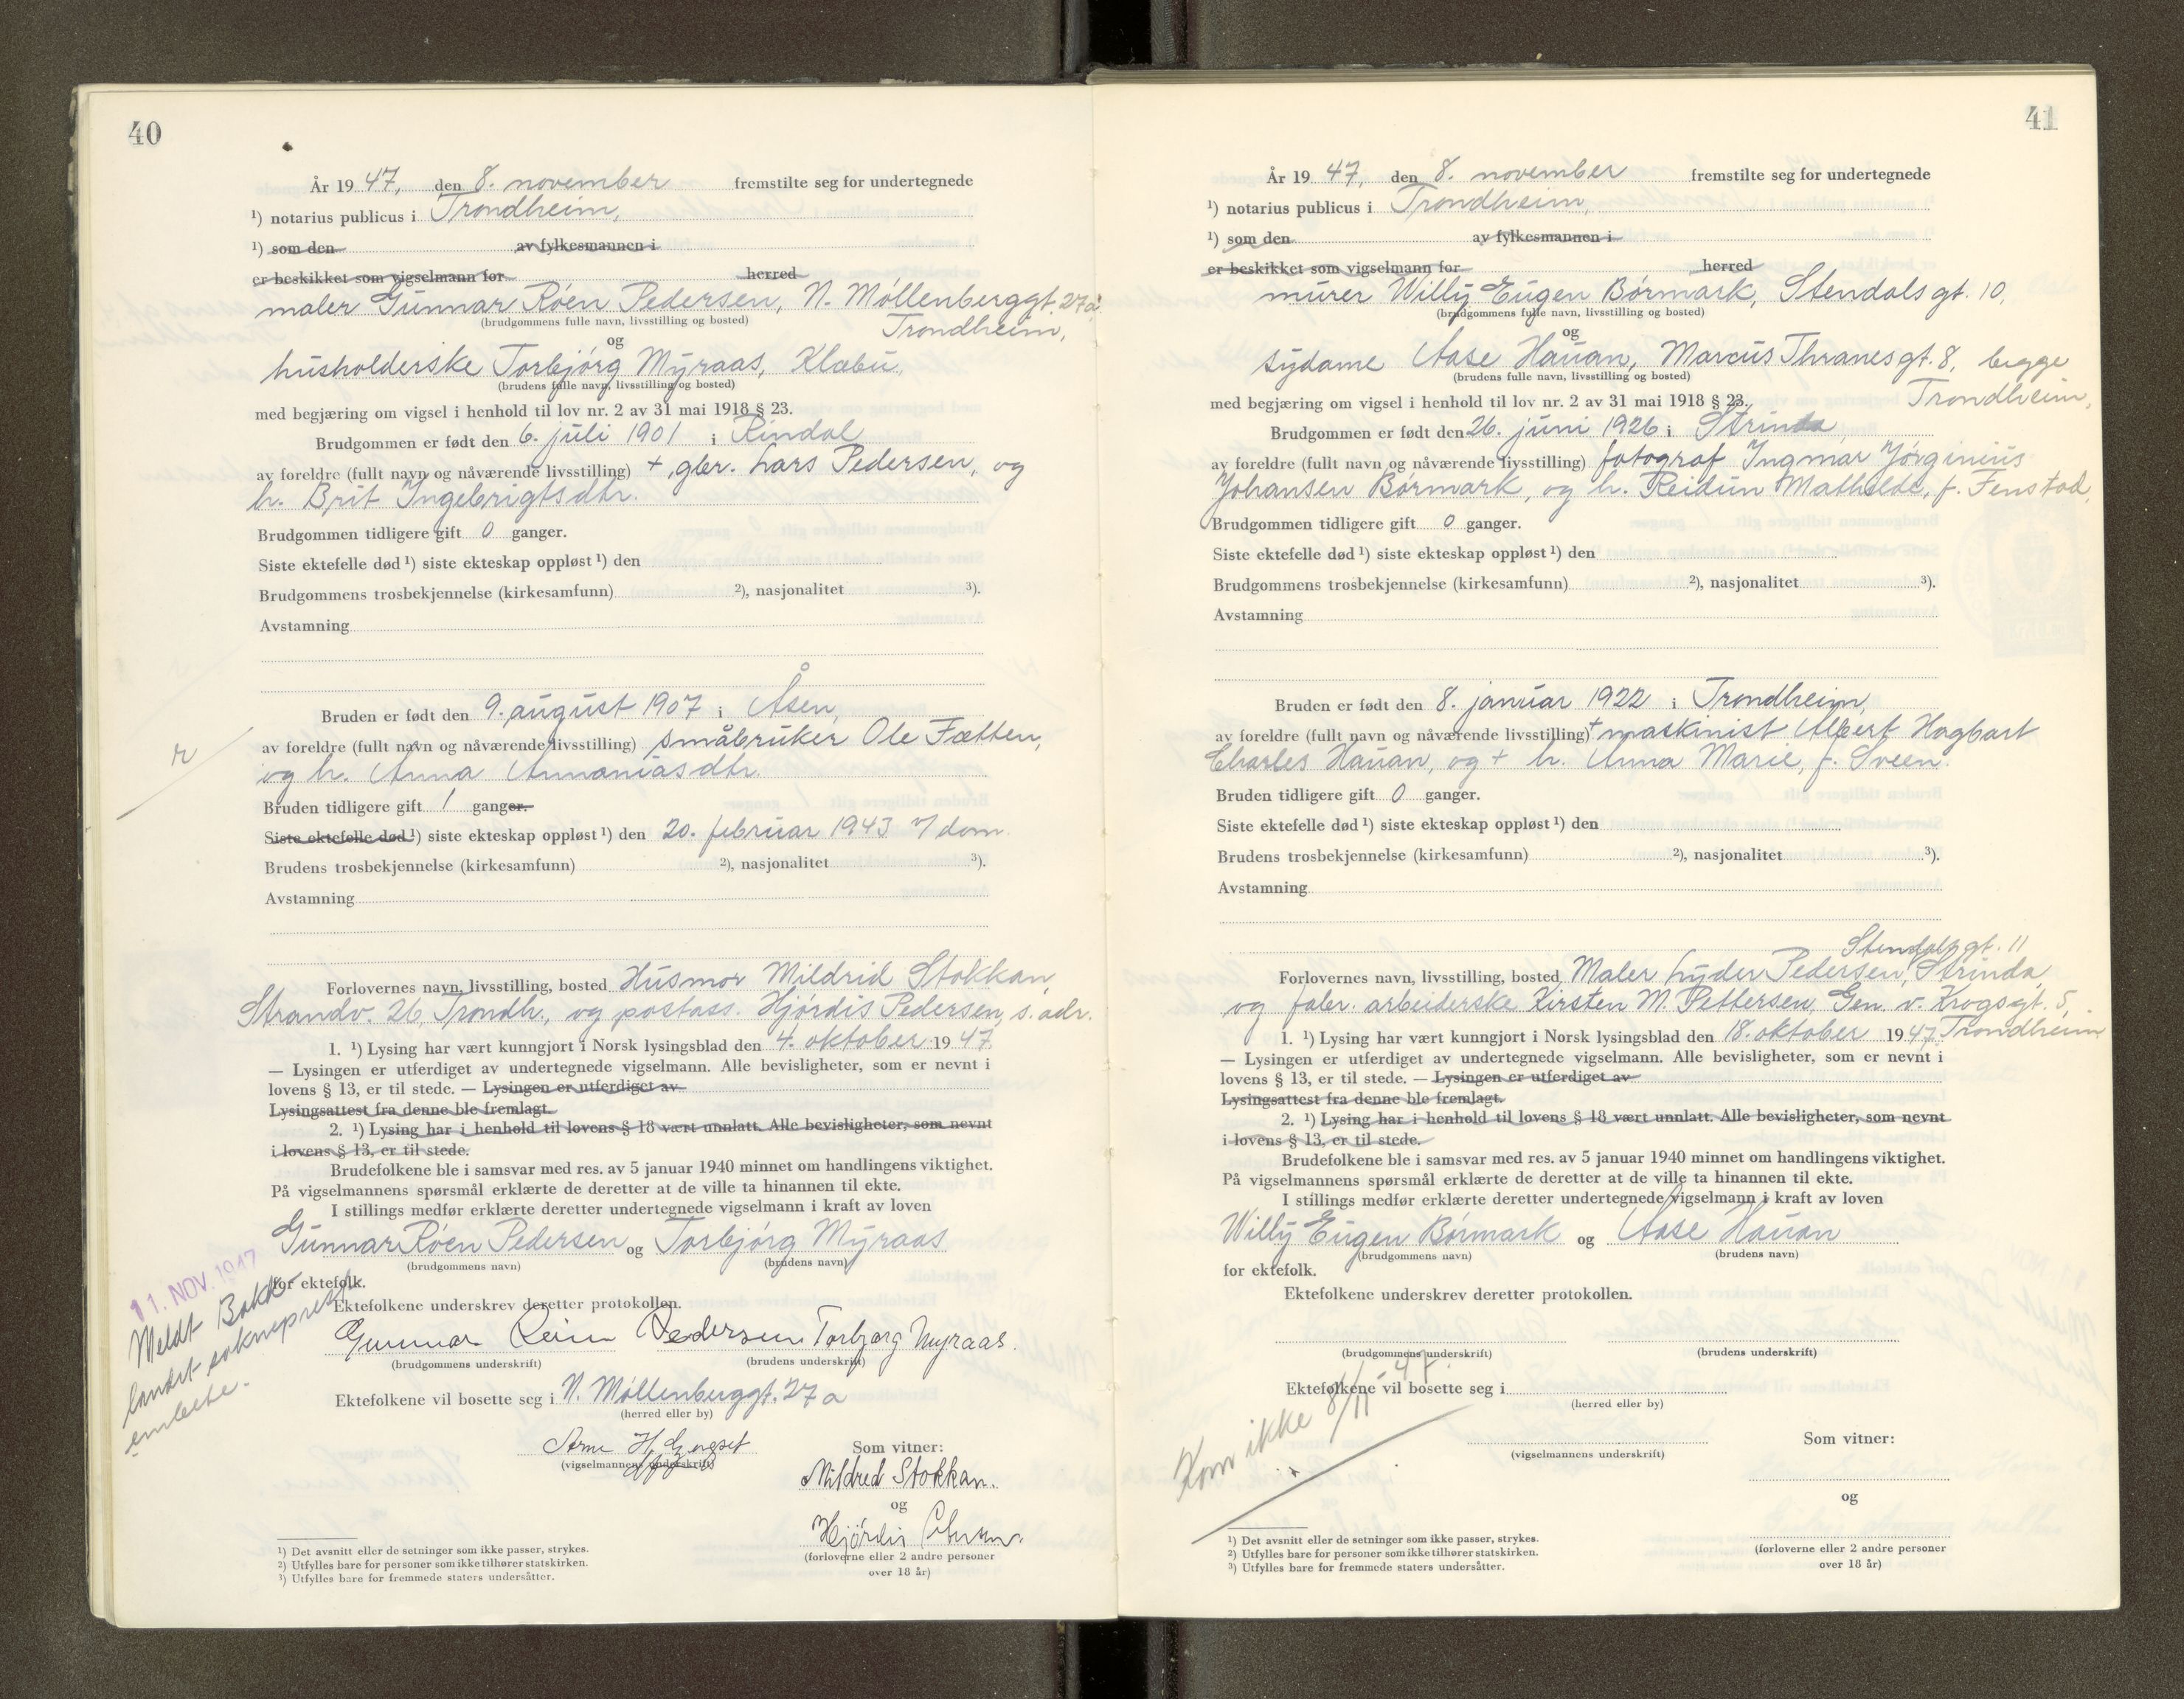 40
År 19 47, den 8. november fremstilte seg for undertegnede
¹) notarius publicus i Trondheim,
¹) som den av fylkesmannen i
er beskikket som vigselmann for herred
maler Gunnar Röen Pedersen, N. Möllenberggt. 27a
(brudgommens fulle navn, livsstilling og bosted)
Trondheim,
og
husholderske Torbjörg Myraas, Klæbu,
(brudens fulle navn, livsstilling og bosted)
med begjæring om vigsel i henhold til lov nr. 2 av 31 mai 1918 § 23.
Brudgommen er født den 6. juli 1901 i Rindal
av foreldre (fullt navn og nåværende livsstilling) +, gbr. Lars Pedersen, og
h. Brit Ingebrigtsdtr.
Brudgommen tidligere gift 0 ganger.
Siste ektefelle død ¹) siste ekteskap oppløst ¹) den
Brudgommens trosbekjennelse (kirkesamfunn) ²), nasjonalitet ³).
Avstamning
Bruden er født den 9. august 1907 i Åsen,
av foreldre (fullt navn og nåværende livsstilling) småbruker Ole Fætten,
og h. Anna Annaniasdtr.
Bruden tidligere gift 1 ganger.
Siste ektefelle død ¹) siste ekteskap oppløst ¹) den 20. februar 1943 v/dom.
Brudens trosbekjennelse (kirkesamfunn) ²), nasjonalitet ³).
Avstamning
Forlovernes navn, livsstilling, bosted Husmor Mildrid Stokkan,
Strandv. 26, Trondh., og postass. Hjördis Pedersen, s. adr.
1. ¹) Lysing har vært kunngjort i Norsk lysingsblad den 4. oktober 19 47.
— Lysingen er utferdiget av undertegnede vigselmann. Alle bevisligheter, som er nevnt i
lovens § 13, er til stede. — Lysingen er utferdiget av
Lysingsattest fra denne ble fremlagt.
2. ¹) Lysing har i henhold til lovens § 18 vært unnlatt. Alle bevisligheter, som nevnt
i lovens § 13, er til stede.
Brudefolkene ble i samsvar med res. av 5 januar 1940 minnet om handlingens viktighet.
På vigselmannens spørsmål erklærte de deretter at de ville ta hinannen til ekte.
I stillings medfør erklærte deretter undertegnede vigselmann i kraft av loven
Gunnar Röen Pedersen og Torbjörg Myraas
(brudgommens navn) (brudens navn)
for ektefolk.
11. NOV. 1947
Meldt Bakk
landet sokneprest
embete.
Ektefolkene underskrev deretter protokollen.
Gunnar Röen Pedersen Torbjørg Myraas.
(brudgommens underskrift) (brudens underskrift)
Ektefolkene vil bosette seg i N. Möllenberggt. 27 a
(herred eller by)
Arne
(vigselmannens underskrift)
Som vitner:
Mildred Stokkan.
og
Hjördis
(forloverne eller 2 andre personer
over 18 år)
¹) Det avsnitt eller de setninger som ikke passer, strykes.
²) Utfylles bare for personer som ikke tilhører statskirken.
³) Utfylles bare for fremmede staters undersåtter.
41
År 19 47, den 8. november fremstilte seg for undertegnede
¹) notarius publicus i Trondheim,
¹) som den av fylkesmannen i
er beskikket som vigselmann for herred
murer Willy Eugen Börmark, Stendalsgt. 10,
(brudgommens fulle navn, livsstilling og bosted)
og
sydame Aase Hauan, Marcus Thranesgt. 8, begge
(brudens fulle navn, livsstilling og bosted)
Trondheim,
med begjæring om vigsel i henhold til lov nr. 2 av 31 mai 1918 § 23.
Brudgommen er født den 26. juni 1926 i Strinda,
av foreldre (fullt navn og nåværende livsstilling) fotograf Ingmar Jörginius
Johansen Börmark, og h. Reidun Mathilde, f. Fenstad,
Brudgommen tidligere gift 0 ganger.
Siste ektefelle død ¹) siste ekteskap oppløst ¹) den
Brudgommens trosbekjennelse (kirkesamfunn) ²), nasjonalitet ³).
Avstamning
Bruden er født den 8. januar 1922 i Trondheim,
av foreldre (fullt navn og nåværende livsstilling) + maskinist Albert Hagbart
Charles Hauan, og + h. Anna Marie, f. Sveen.
Bruden tidligere gift 0 ganger.
Siste ektefelle død ¹) siste ekteskap oppløst ¹) den
Brudens trosbekjennelse (kirkesamfunn) ²), nasjonalitet ³).
Avstamning
Stendalsgt. 11
Forlovernes navn, livsstilling, bosted Maler Lyder Pedersen, Strinda,
og fabr. arbeiderske Kirsten M. Pettersen, Gen. v. Krogsgt. 5,
1. ¹) Lysing har vært kunngjort i Norsk lysingsblad den 18. oktober 19 47. Trondheim
— Lysingen er utferdiget av undertegnede vigselmann. Alle bevisligheter, som er nevnt i
lovens § 13, er til stede. — Lysingen er utferdiget av
Lysingsattest fra denne ble fremlagt.
2. ¹) Lysing har i henhold til lovens § 18 vært unnlatt. Alle bevisligheter, som nevnt
i lovens § 13, er til stede.
Brudefolkene ble i samsvar med res. av 5 januar 1940 minnet om handlingens viktighet.
På vigselmannens spørsmål erklærte de deretter at de ville ta hinannen til ekte.
I stillings medfør erklærte deretter undertegnede vigselmann i kraft av loven
Willy Eugen Börmark og Aase Hauan
(brudgommens navn) (brudens navn)
for ektefolk.
Ektefolkene underskrev deretter protokollen.
(brudgommens underskrift) (brudens underskrift)
Ektefolkene vil bosette seg i
(herred eller by)
Kom ikke 8/11 - 47.
(vigselmannens underskrift)
Som vitner:
og
(forloverne eller 2 andre personer
over 18 år)
¹) Det avsnitt eller de setninger som ikke passer, strykes.
²) Utfylles bare for personer som ikke tilhører statskirken.
³) Utfylles bare for fremmede staters undersåtter.